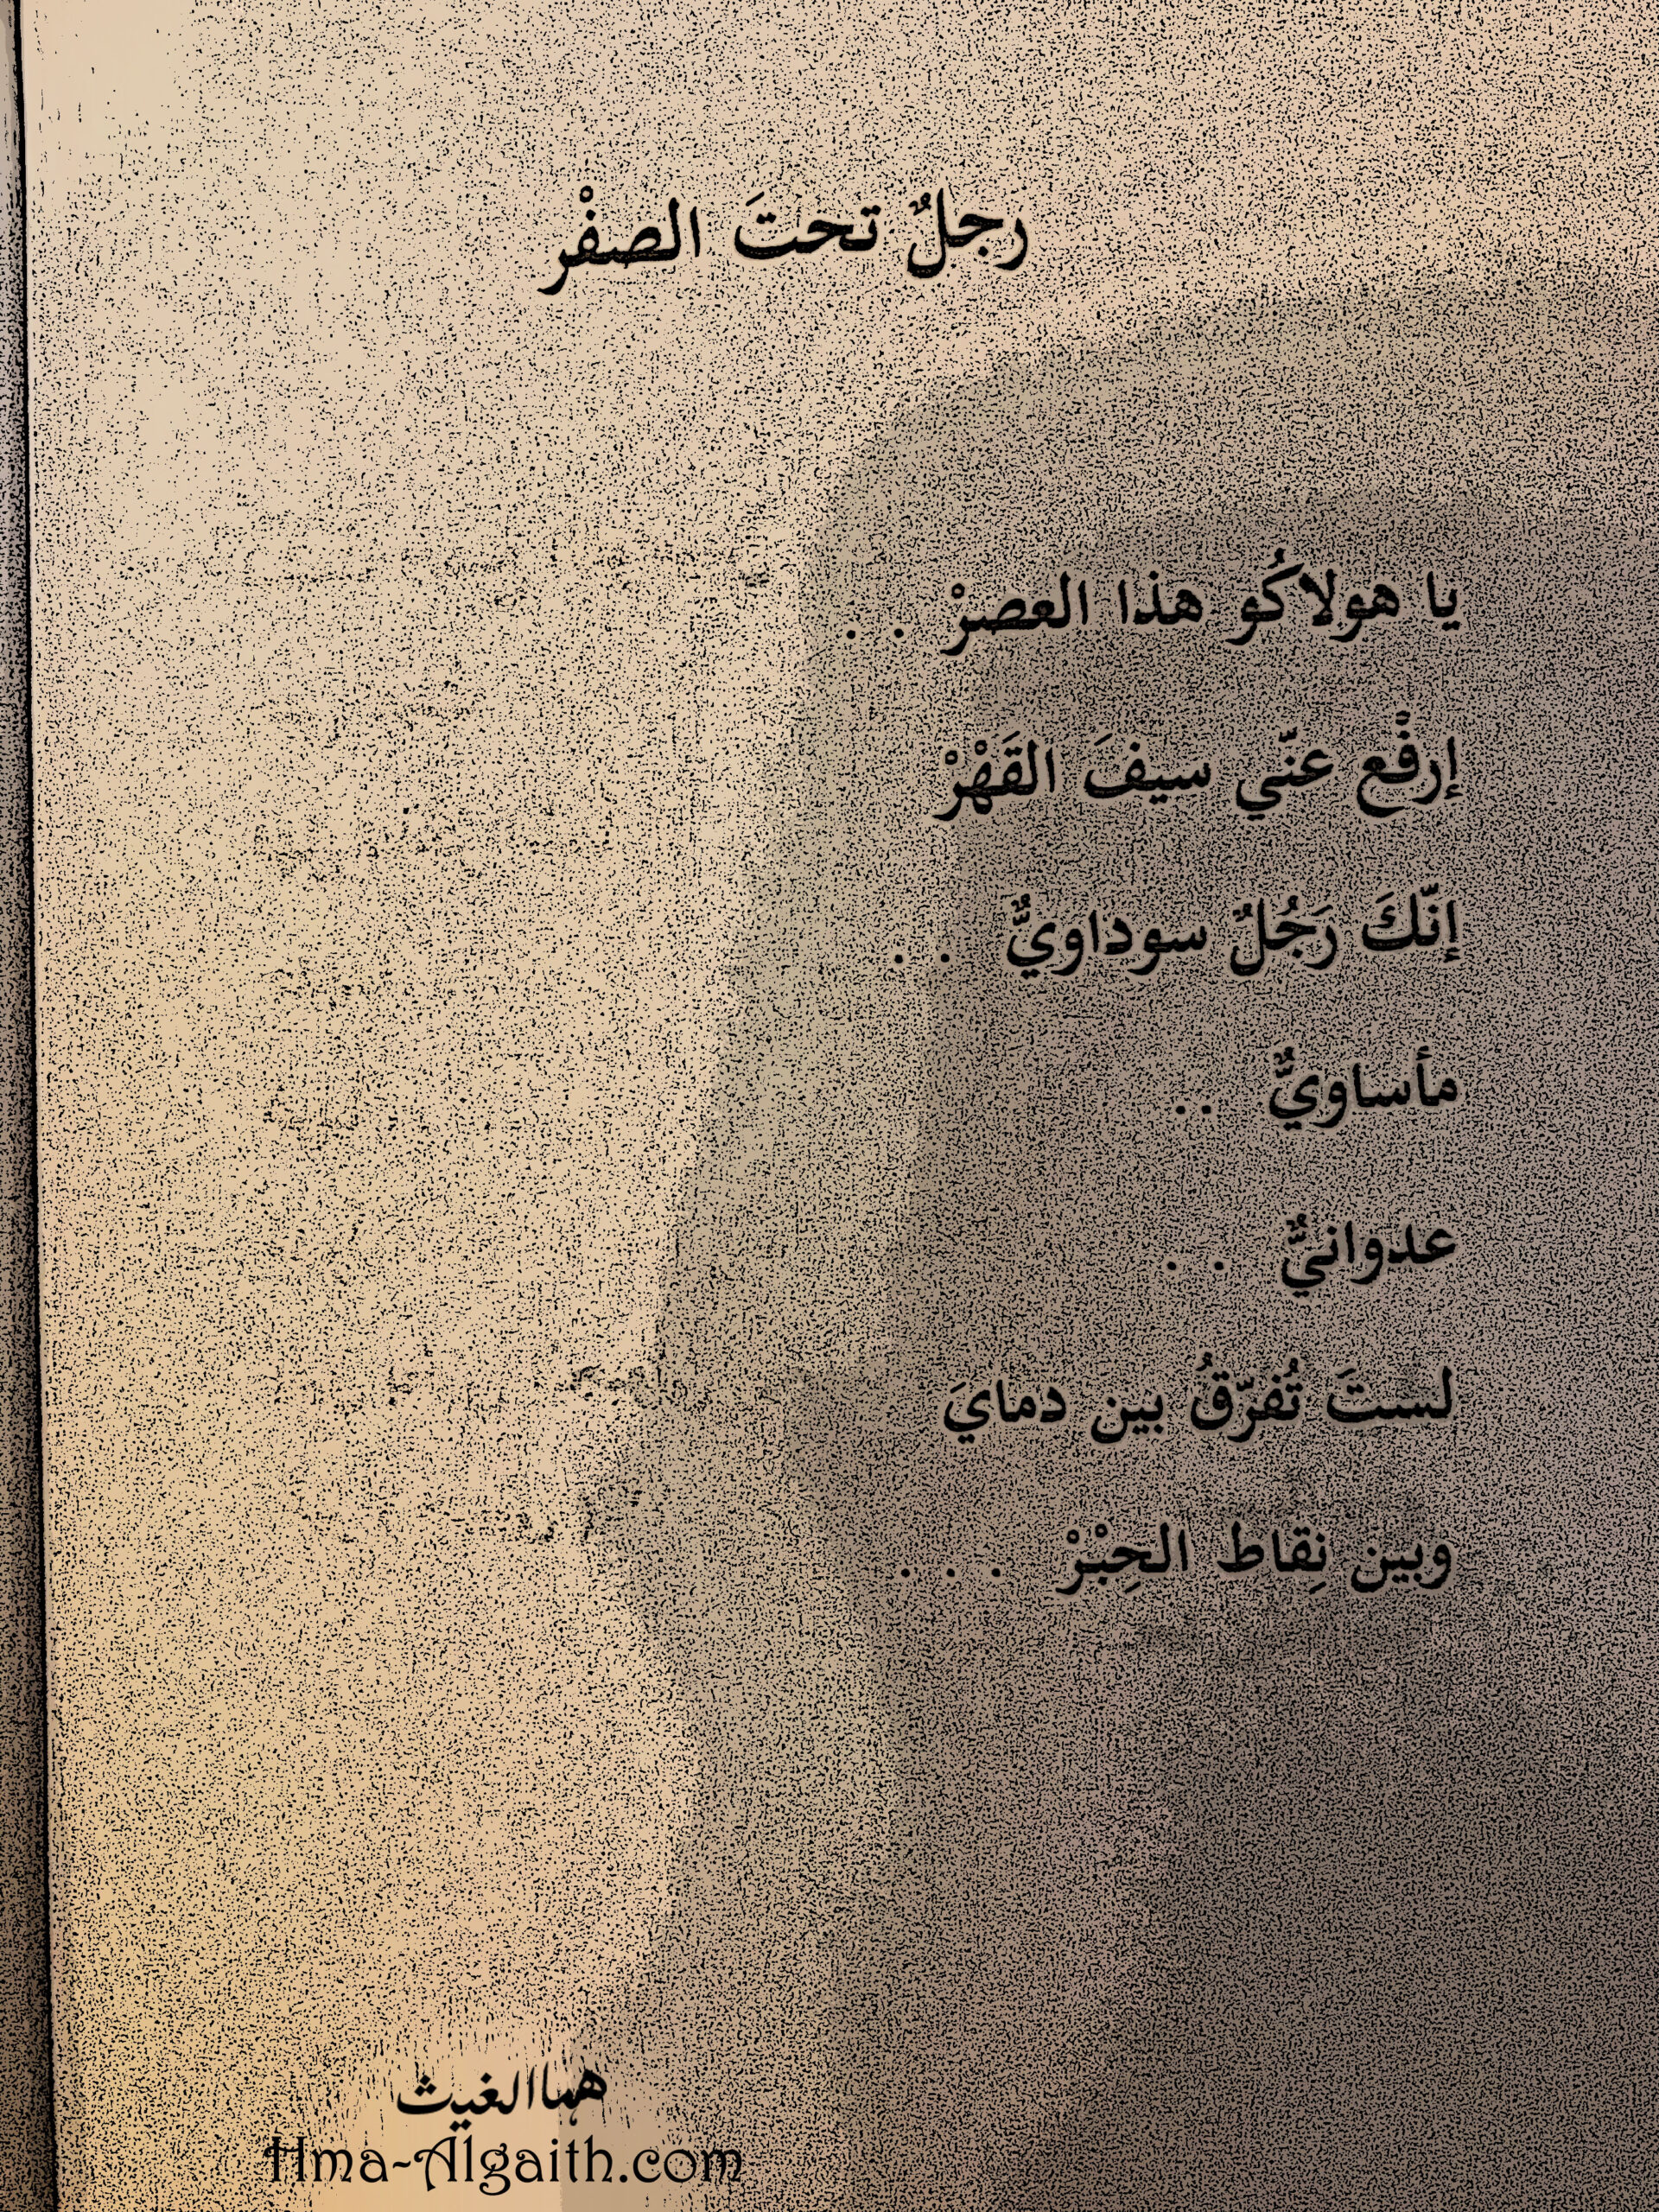 رجلٌ تحتَ الصفْر
يا هولاكُو هذا العصرْ . .
إرفْع عنّي سيفَ القَهْرْ
إنّكَ رَجُلٌ سوداويٌّ . .
مأساويٌّ ..
عدوانيٌّ . .
لستَ تُفرّقُ بين دمايَ
وبين نِقاط الحِبْرْ . . .
هماالغيث
Hma-Algaith.com